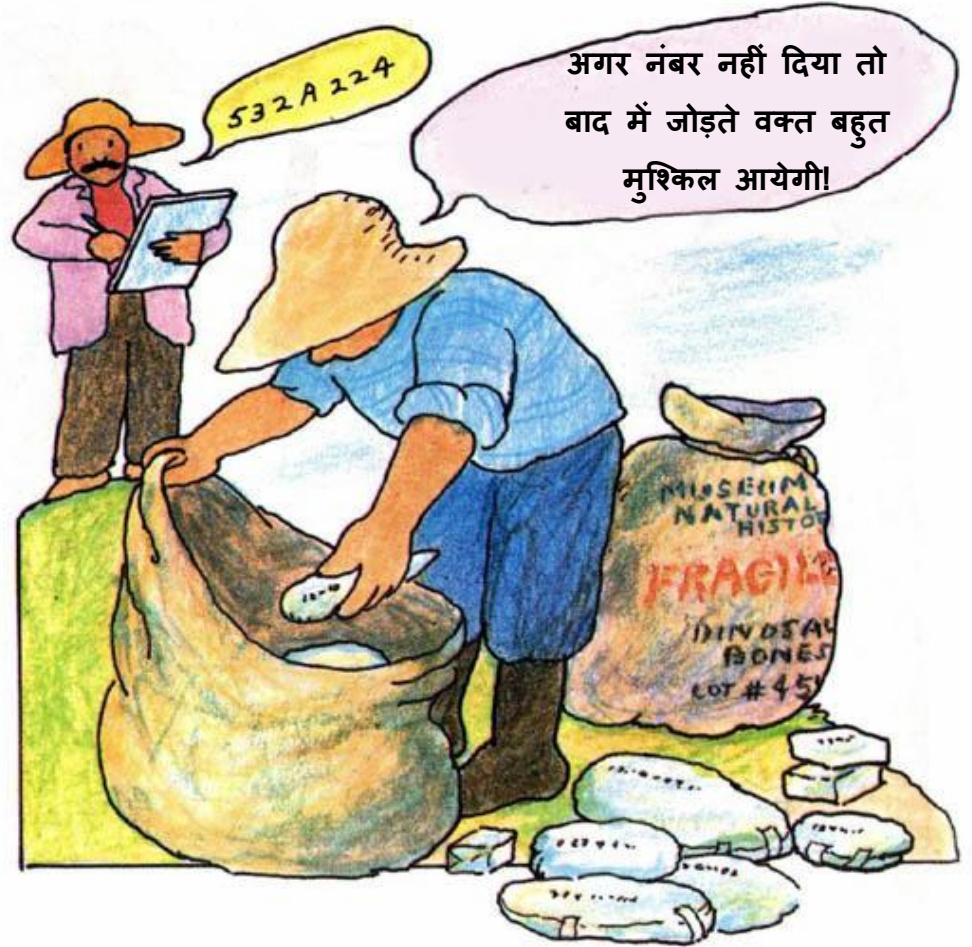 532A224
अगर नंबर नहीं दिया तो
बाद में जोड़ते वक्त बहुत
मुश्किल आयेगी!
MUSEUM
NATURAL
HISTO
FRAGILE
DINOSAU
BONES
LOT # 45